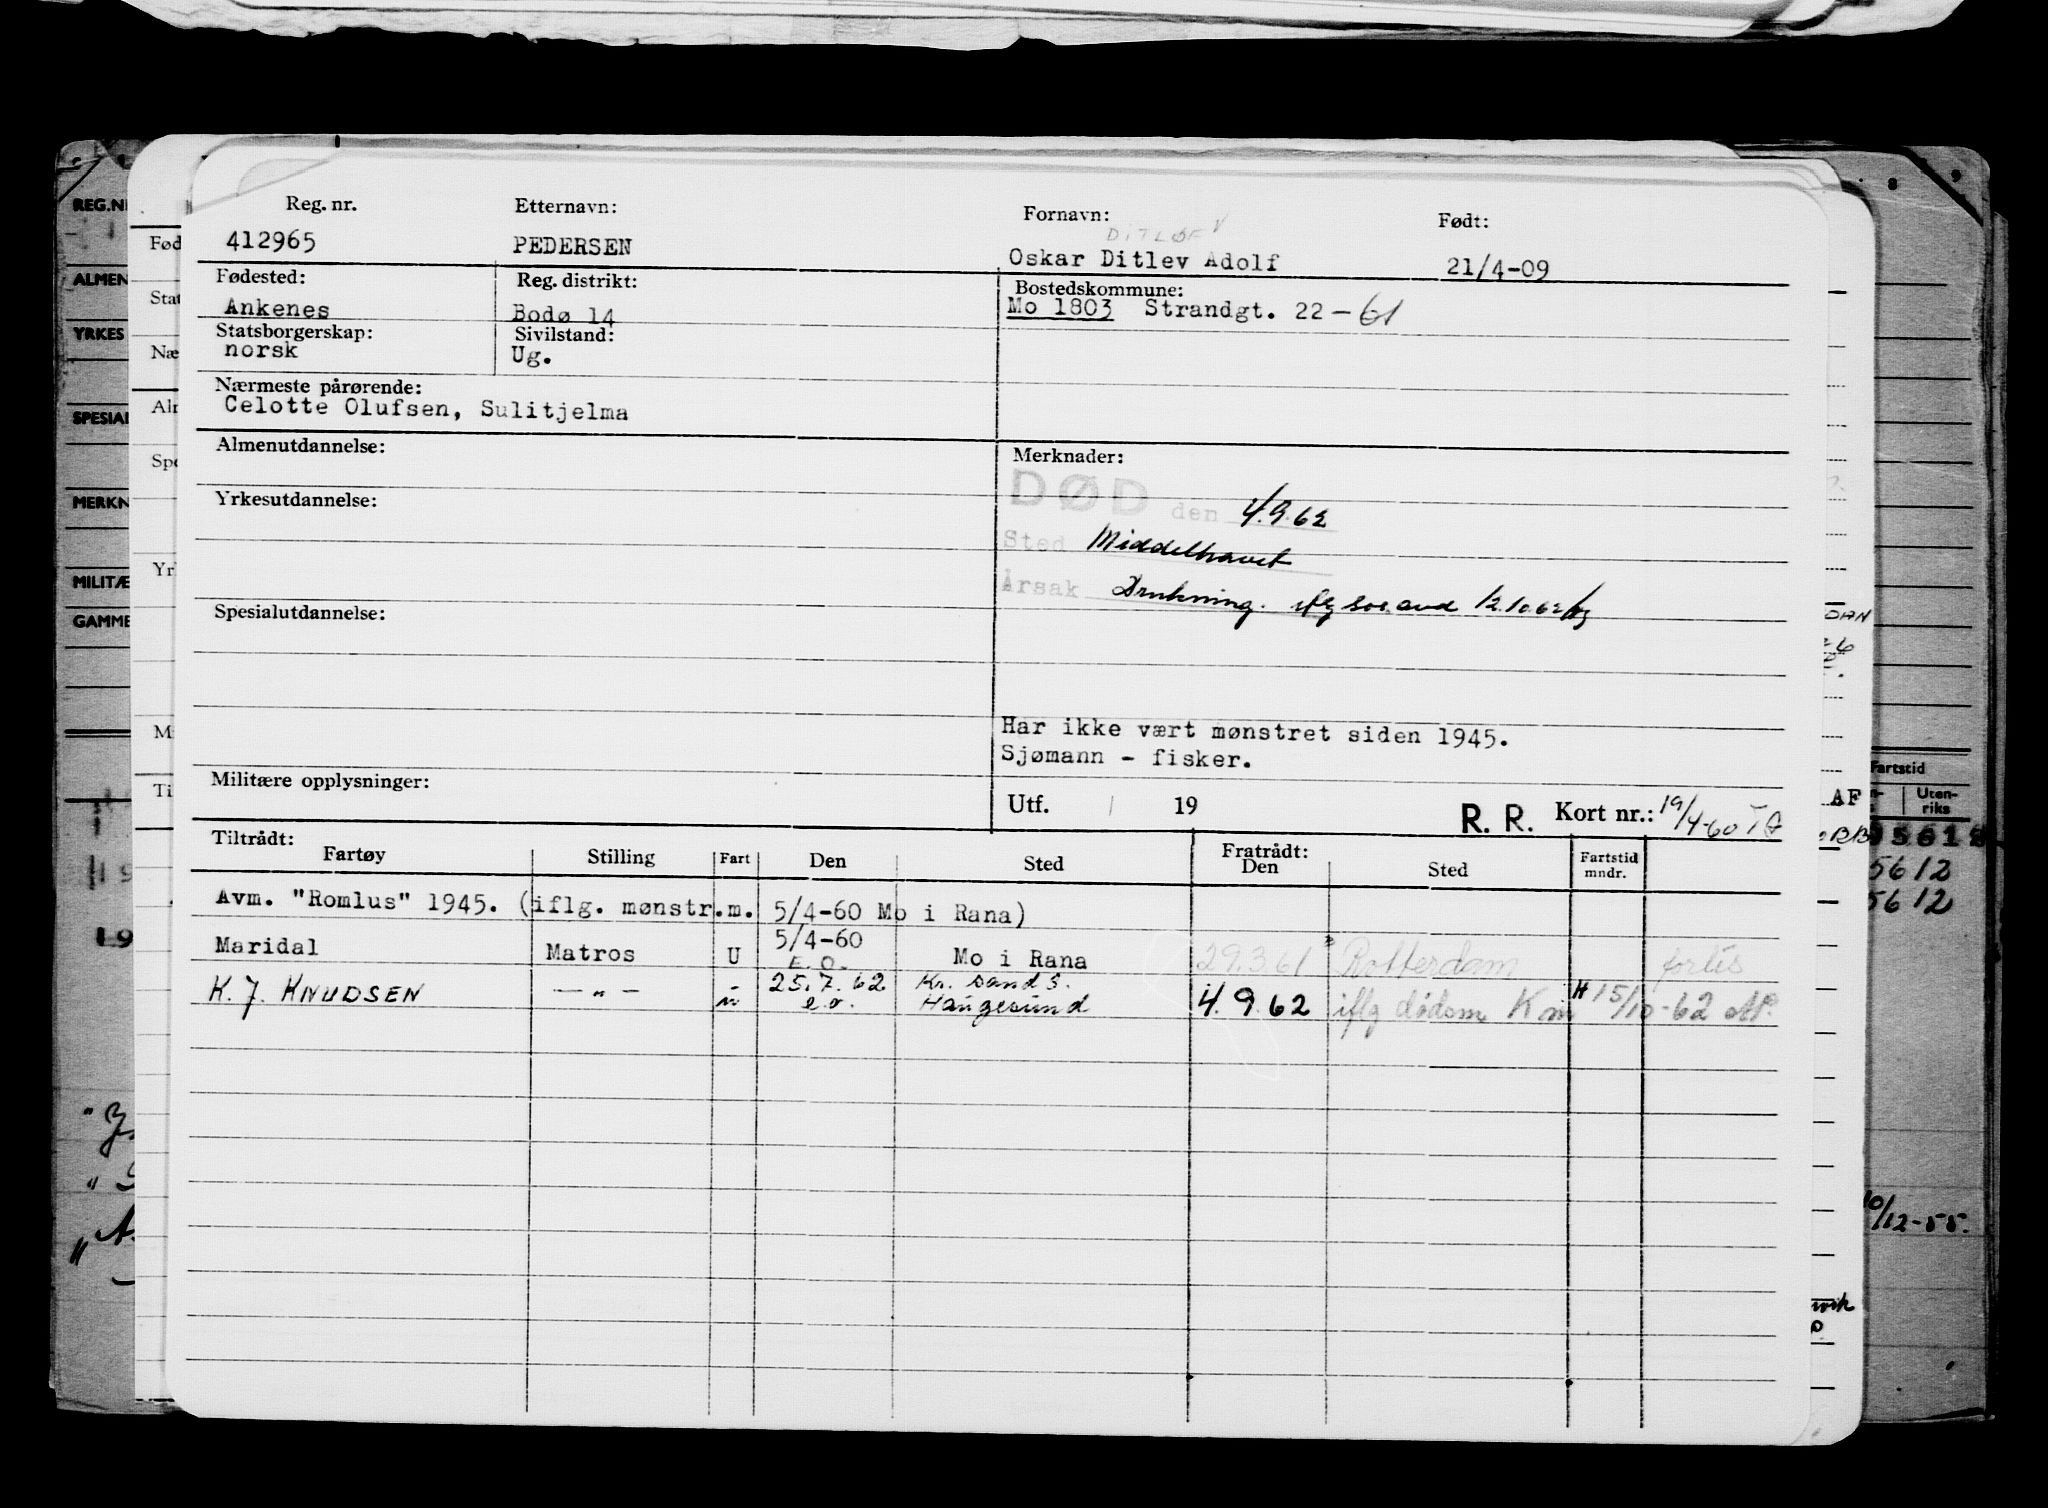 Reg. nr. Etternavn: Fornavn: Født:
DITLØF
412965 PEDERSEN Oskar Ditlev Adolf 21/4-09
Fødested: Reg. distrikt: Bostedskommune:
Ankenes Bodø 14 Mo 1803 Strandgt. 22 - 61
Statsborgerskap: Sivilstand:
norsk Ug.
Nærmeste pårørende:
Celotte Olufsen, Sulitjelma
Almenutdannelse: Merknader:
DØD den 4.9.62
Yrkesutdannelse:
Sted Middelhavet
Årsak Drukning. iflg sos. avd 12.10.62
Spesialutdannelse:
Har ikke vært mønstret siden 1945.
Sjømann - fisker.
Militære opplysninger:
Utf. / 19 R. R. Kort nr.: 19/4-60
Tiltrådt: Fratrådt:
Fartøy Stilling Fart Den Sted Den Sted Fartstid mndr.
Avm. "Romlus" 1945. (iflg. mønstr.m. 5/4-60 Mo i Rana)
Maridal Matros U 5/4-60 Mo i Rana 29.3.61 Rotterdam forlis
E.O.
K. J. KNUDSEN — " — 25.7.62 Kr. sand S.
e.o. Haugesund 4.9.62 iflg dødsm K m 15/10-62
REG.N
ALMEN
YRKES
SPESIAL
MERKN
MILITÆ
GAMME
Fød
Stat
Næ
Alr
Spe
Yr
M
Ti
DAN
AF
Fartstid
Uten-
riks
5612
5612
10/12-55.